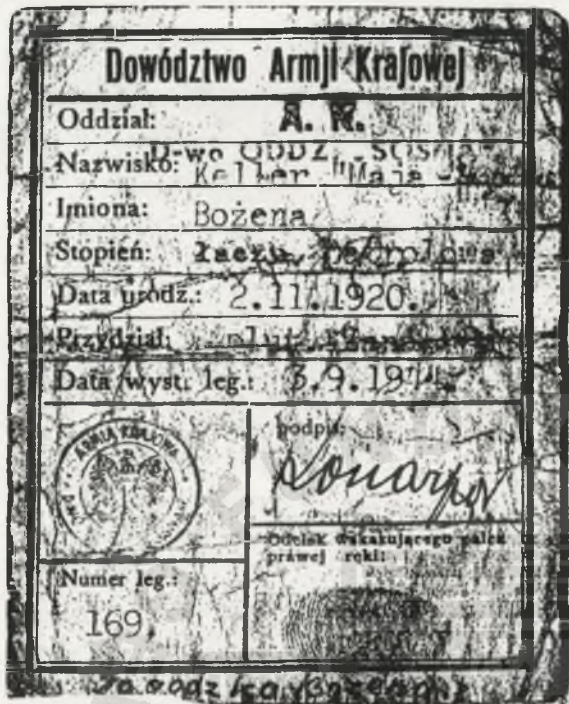 Dowództwo Armji Krajowej
Oddział: A. K.
D-wo ODDZ. "SOSNA"
Nazwisko: Keller "Maja"
Imiona: Bożena
Stopień: łączn.
Data urodz.: 2.11.1920.
Przydział: plut.
Data wyst. leg.: 3.9.1944.
ARMIA KRAJOWA
podpis:
Odcisk wskazującego palca
prawej ręki:
Numer leg.:
169